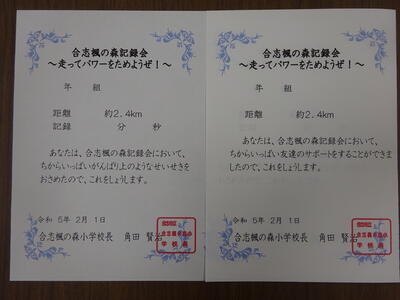 合志楓の森記録会
～走ってパワーをためようぜ！～
年 組
距離 約2.4km
記録 分 秒
あなたは、合志楓の森記録会において、
ちからいっぱいがんばり上のようなせいせきを
おさめたので、これをしょうします。
令和 5年 2月 1日
合志楓の森小学校長 角田 賢治
合志楓の森記録会
～走ってパワーをためようぜ！～
年 組
距離 約2.4km
あなたは、合志楓の森記録会において、
ちからいっぱい友達のサポートをすることができま
したので、これをしょうします。
令和 5年 2月 1日
合志楓の森小学校長 角田 賢治